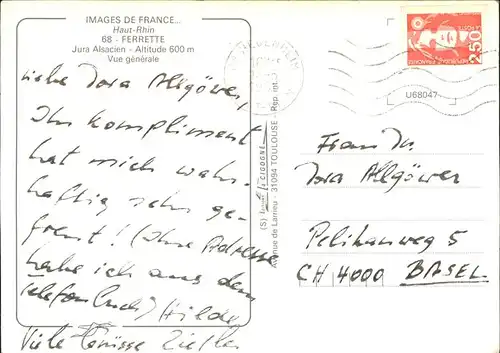 IMAGES DE FRANCE...
Haut-Rhin
68 - FERRETTE
Jura Alsacien - Altitude 600 m
Vue générale
Liebe Dora Allgöwer,
Ihr Kompliment
hat mich wahr-
haftig sehr ge-
freut! (Ihre Adresse
habe ich aus dem
Telefonbuch) Hilde
Viele Grüsse Ziegler
(S) LA CIGOGNE
Avenue de Larrieu - 31094 TOULOUSE - Rep. int.
2,50
LA POSTE
REPUBLIQUE FRANÇAISE
U68047
Frau Dr.
Dora Allgöwer
Pelikanweg 5
CH 4000 BASEL